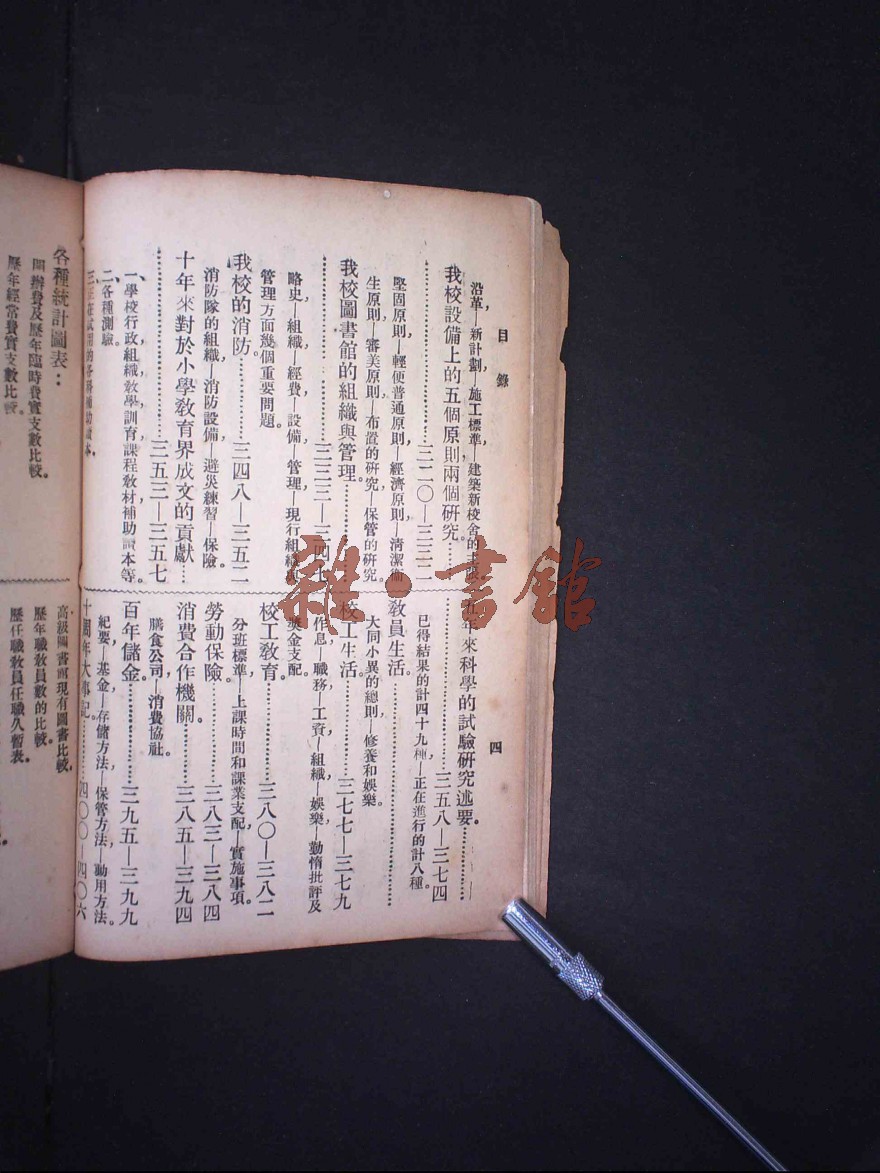 目錄
四
沿革—新計劃—施工標準—建築新校舍的
我校設備上的五個原則兩個研究。
三二〇—三三二
堅固原則—輕便普通原則—經濟原則—清潔衞
生原則—審美原則—布置的研究—保管的研究
我校圖書館的組織與管理。
三三三—三四七
略史—組織—經費—設備—管理—現行組織
管理方面幾個重要問題。
我校的消防。三四八—三五二
消防隊的組織—消防設備—避災練習—保險。
十年來對於小學敎育界成文的貢獻
三五三—三五七
一、學校行政組織敎學訓育課程敎材補助讀本等。
二、各種測驗。
三、正在試用的各科補助讀本。
近年來科學的試驗研究述要。
三五八—三七四
已得結果的計四十九種—正在進行的計八種。
敎員生活。
大同小異的總則—修養和娛樂
校工生活。三七七—三七九
作息—職務—工資—組織—娛樂—勤惰批評及
獎金支配。
校工敎育。三八〇—三八二
分班標準—上課時間和課業支配—實施事項。
勞動保險。三八三—三八四
消費合作機關。三八五—三九四
膳食公司—消費協社。
百年儲金。三九五—三九九
紀要—基金—存儲方法—保管方法—動用方法。
十周年大事記。四〇〇—四〇六
各種統計圖表：
開辦費及歷年臨時費實支數比較。
歷年經常費實支數比較。
高級圖書室現有圖書比較，
歷年職敎員數的比較。
歷任職敎員任職久暫表。
雜·書館